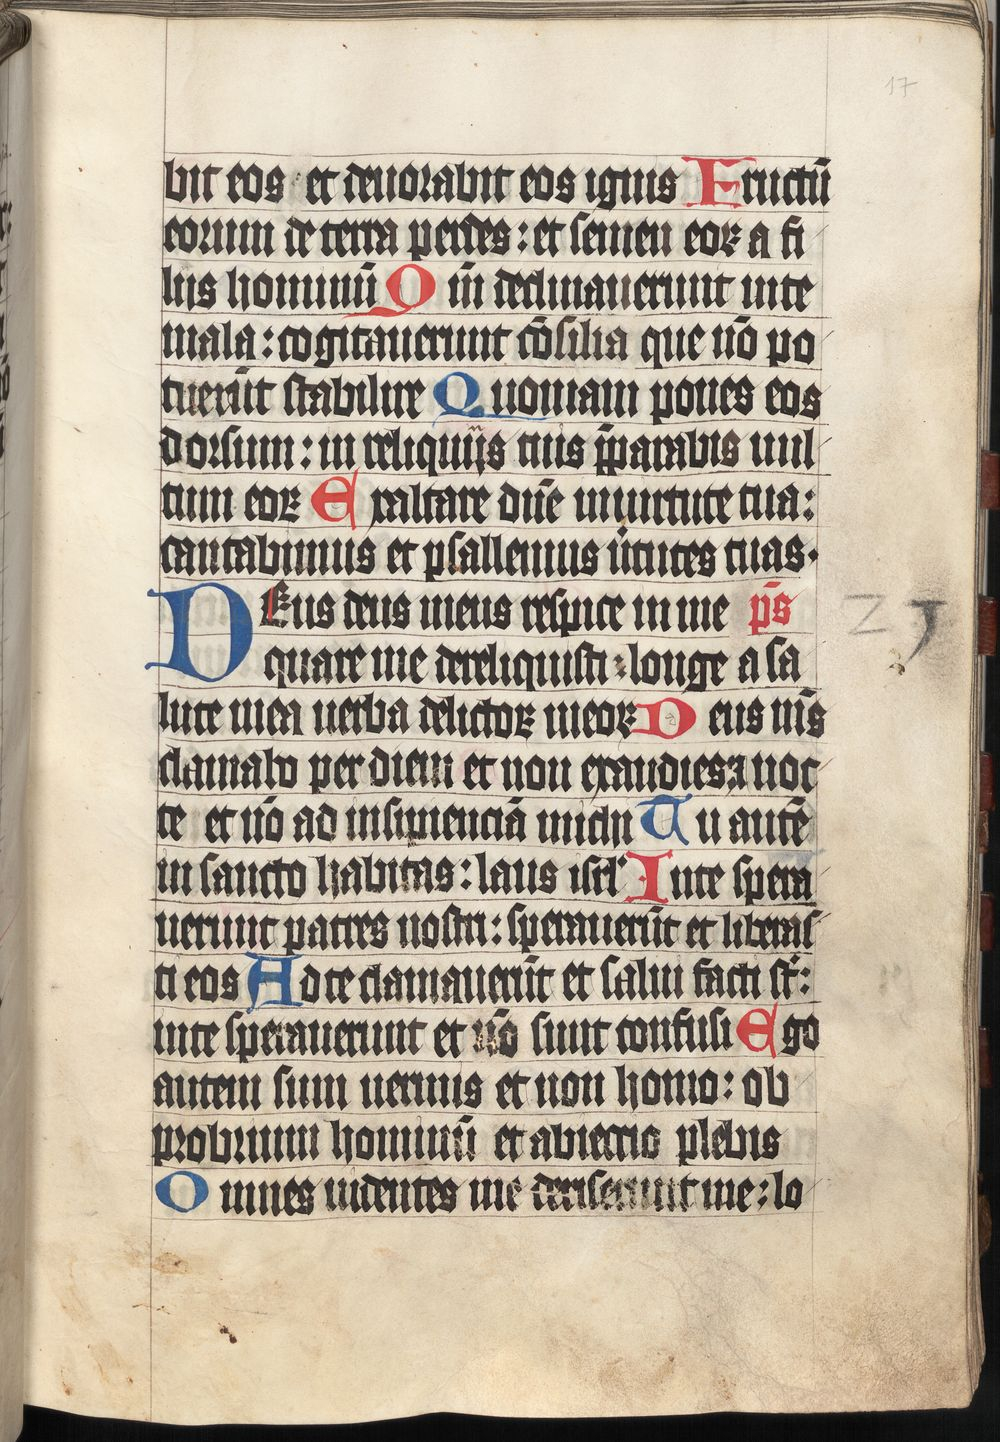 17
bit eos et deuorabit eos ignis Fructū
eorum de terra perdes : et semen eoꝝ a fi
liis hominū Qm̄ declinauerunt in te
mala : cogitauerunt cōsilia que nō po
tuerūt stabilire Quoniam pones eos
dorsum : in reliquiis tuis p̄parabis uul
tum eoꝝ Exaltare dn̄e in uirtute tua :
cantabimus et psallemus ūtutes tuas .
DEus deus meus respice in me p̄s
quare me dereliquisti : longe a sa
lute mea uerba delictoꝝ meoꝝ Deus m̄s
clamabo per diem et non exaudies : ⁊ noc
te et nō ad insipienciā michi Tu autē
in sancto habitas : laus isrl' In te spera
uerunt patres nostri : sperauerūt et liberas
ti eos Ad te clamauerūt et salui facti st̄ :
in te sperauerunt et nō sunt confusi Ego
autem sum uermis et non homo : ob
probrium hominū et abiectio plebis
Omnes uidentes me deriserunt me : lo
21